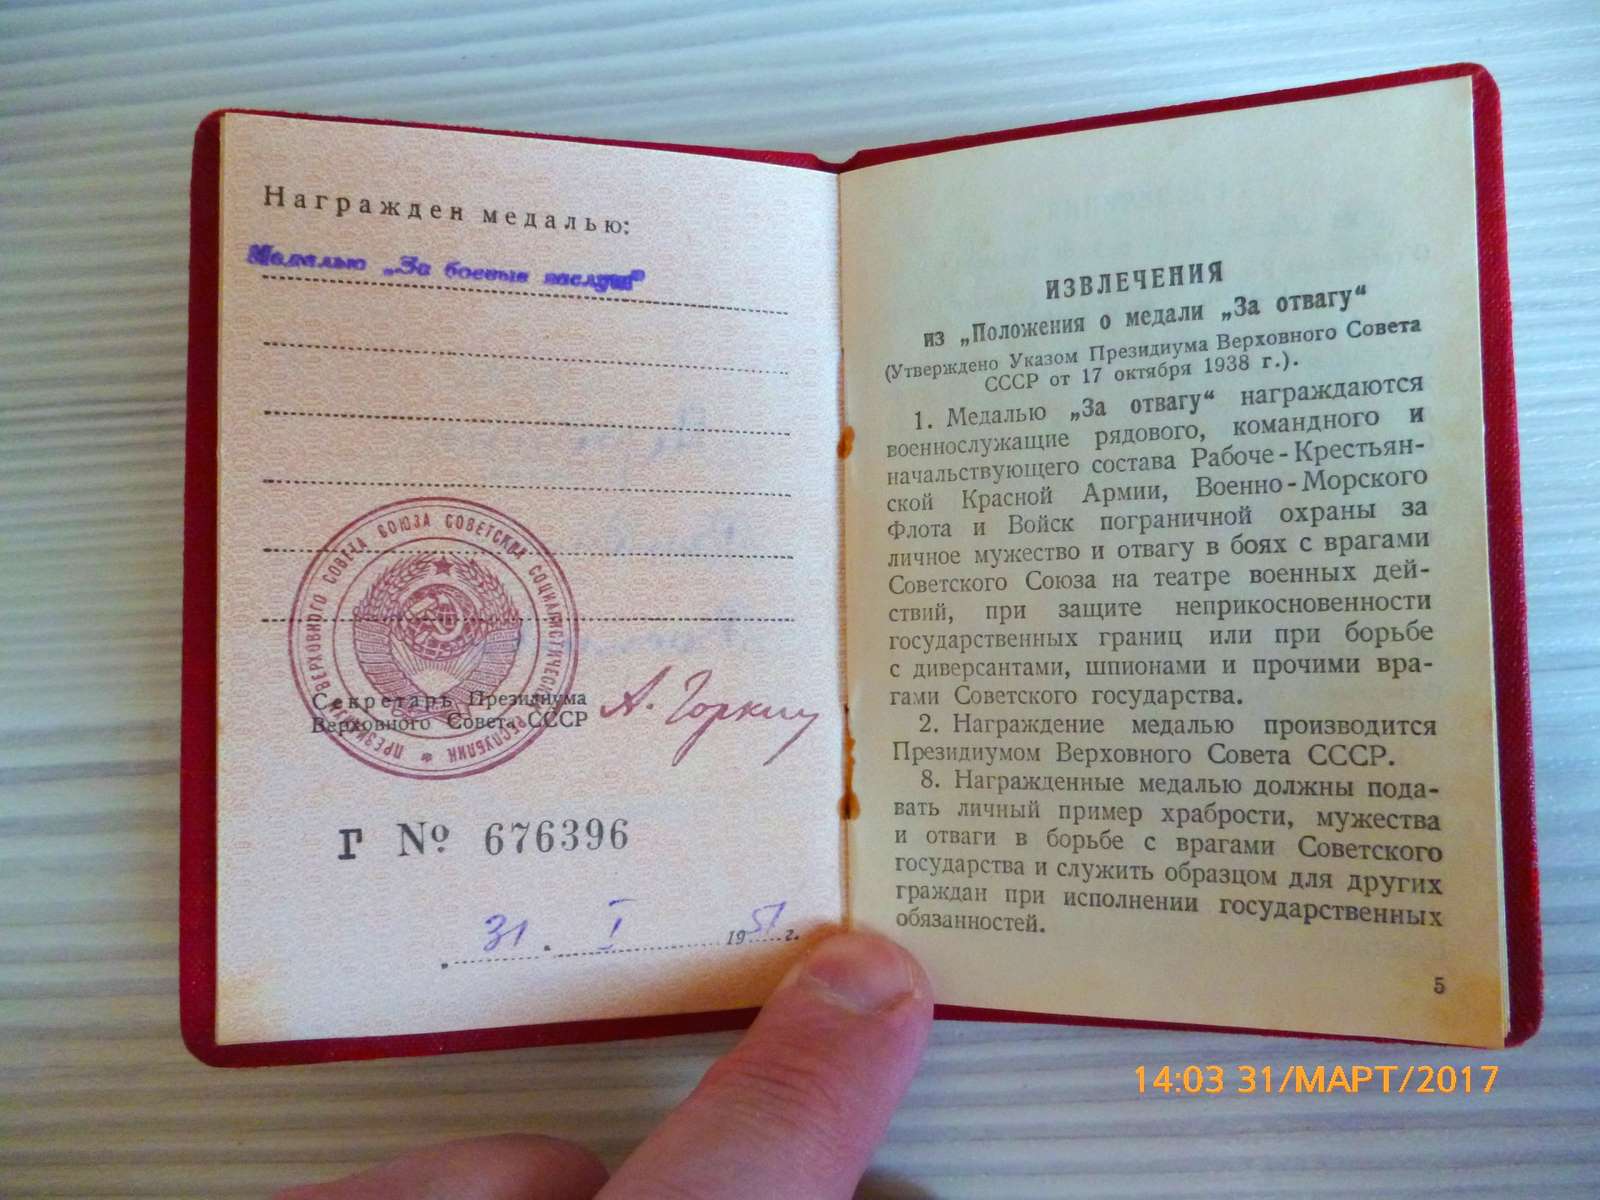 Награжден медалью:
Медалью „За боевые заслуги"
ПРЕЗИДИУМ ВЕРХОВНОГО СОВЕТА СОЮЗА СОВЕТСКИХ СОЦИАЛИСТИЧЕСКИХ РЕСПУБЛИК *
Секретарь Президиума
Верховного Совета СССР
А. Горкин
Г № 676396
31. I 1951 г.
ИЗВЛЕЧЕНИЯ
из „Положения о медали „За отвагу“
(Утверждено Указом Президиума Верховного Совета
СССР от 17 октября 1938 г.).
1. Медалью „За отвагу“ награждаются
военнослужащие рядового, командного и
начальствующего состава Рабоче-Крестьян-
ской Красной Армии, Военно-Морского
Флота и Войск пограничной охраны за
личное мужество и отвагу в боях с врагами
Советского Союза на театре военных дей-
ствий, при защите неприкосновенности
государственных границ или при борьбе
с диверсантами, шпионами и прочими вра-
гами Советского государства.
2. Награждение медалью производится
Президиумом Верховного Совета СССР.
8. Награжденные медалью должны пода-
вать личный пример храбрости, мужества
и отваги в борьбе с врагами Советского
государства и служить образцом для других
граждан при исполнении государственных
обязанностей.
5
14:03 31/МАРТ/2017